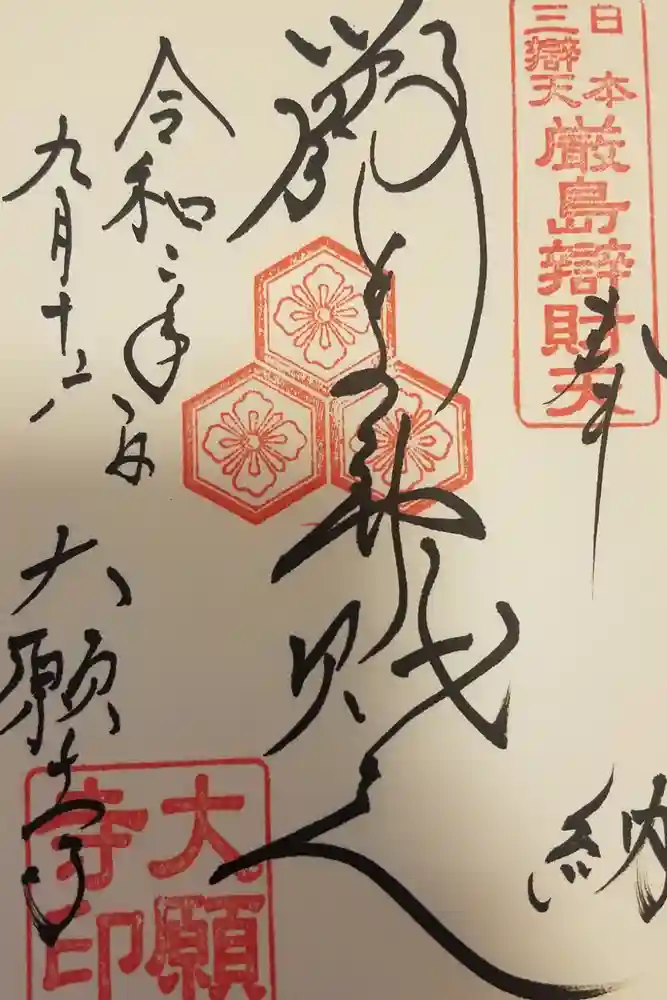 日本
三辯天
厳島辯財天
奉納
厳島辨財天
令和二年
九月十六日
大願寺
大願
寺印